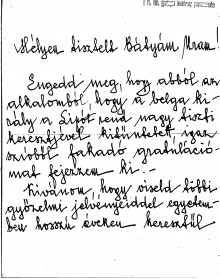 Mélyen tisztelt Bátyám Uram!
Engedd meg, hogy abból az
alkalomból, hogy a belga ki-
rály a Lipót rend nagy tiszti
keresztjével kitüntetett, igaz
szívből fakadó gratuláció-
mat fejezzem ki. –
Kívánom, hogy viseld többi
győzelmi jelvényeiddel egyetem-
ben hosszú éveken keresztül